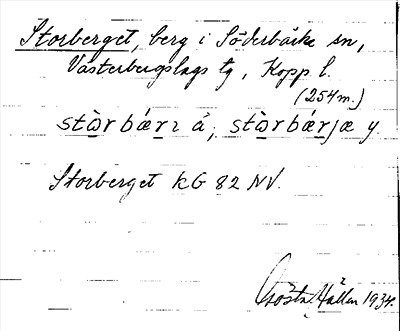 Storberget, berg i Söderbärke sn,
Västerbergslags tg, Kopp l.
(254 m.)
stɷ̀r bærɩ å, stɷ̀r bærjæ y.
Storberget KG 82 NV.
Gösta Hallén 1934.